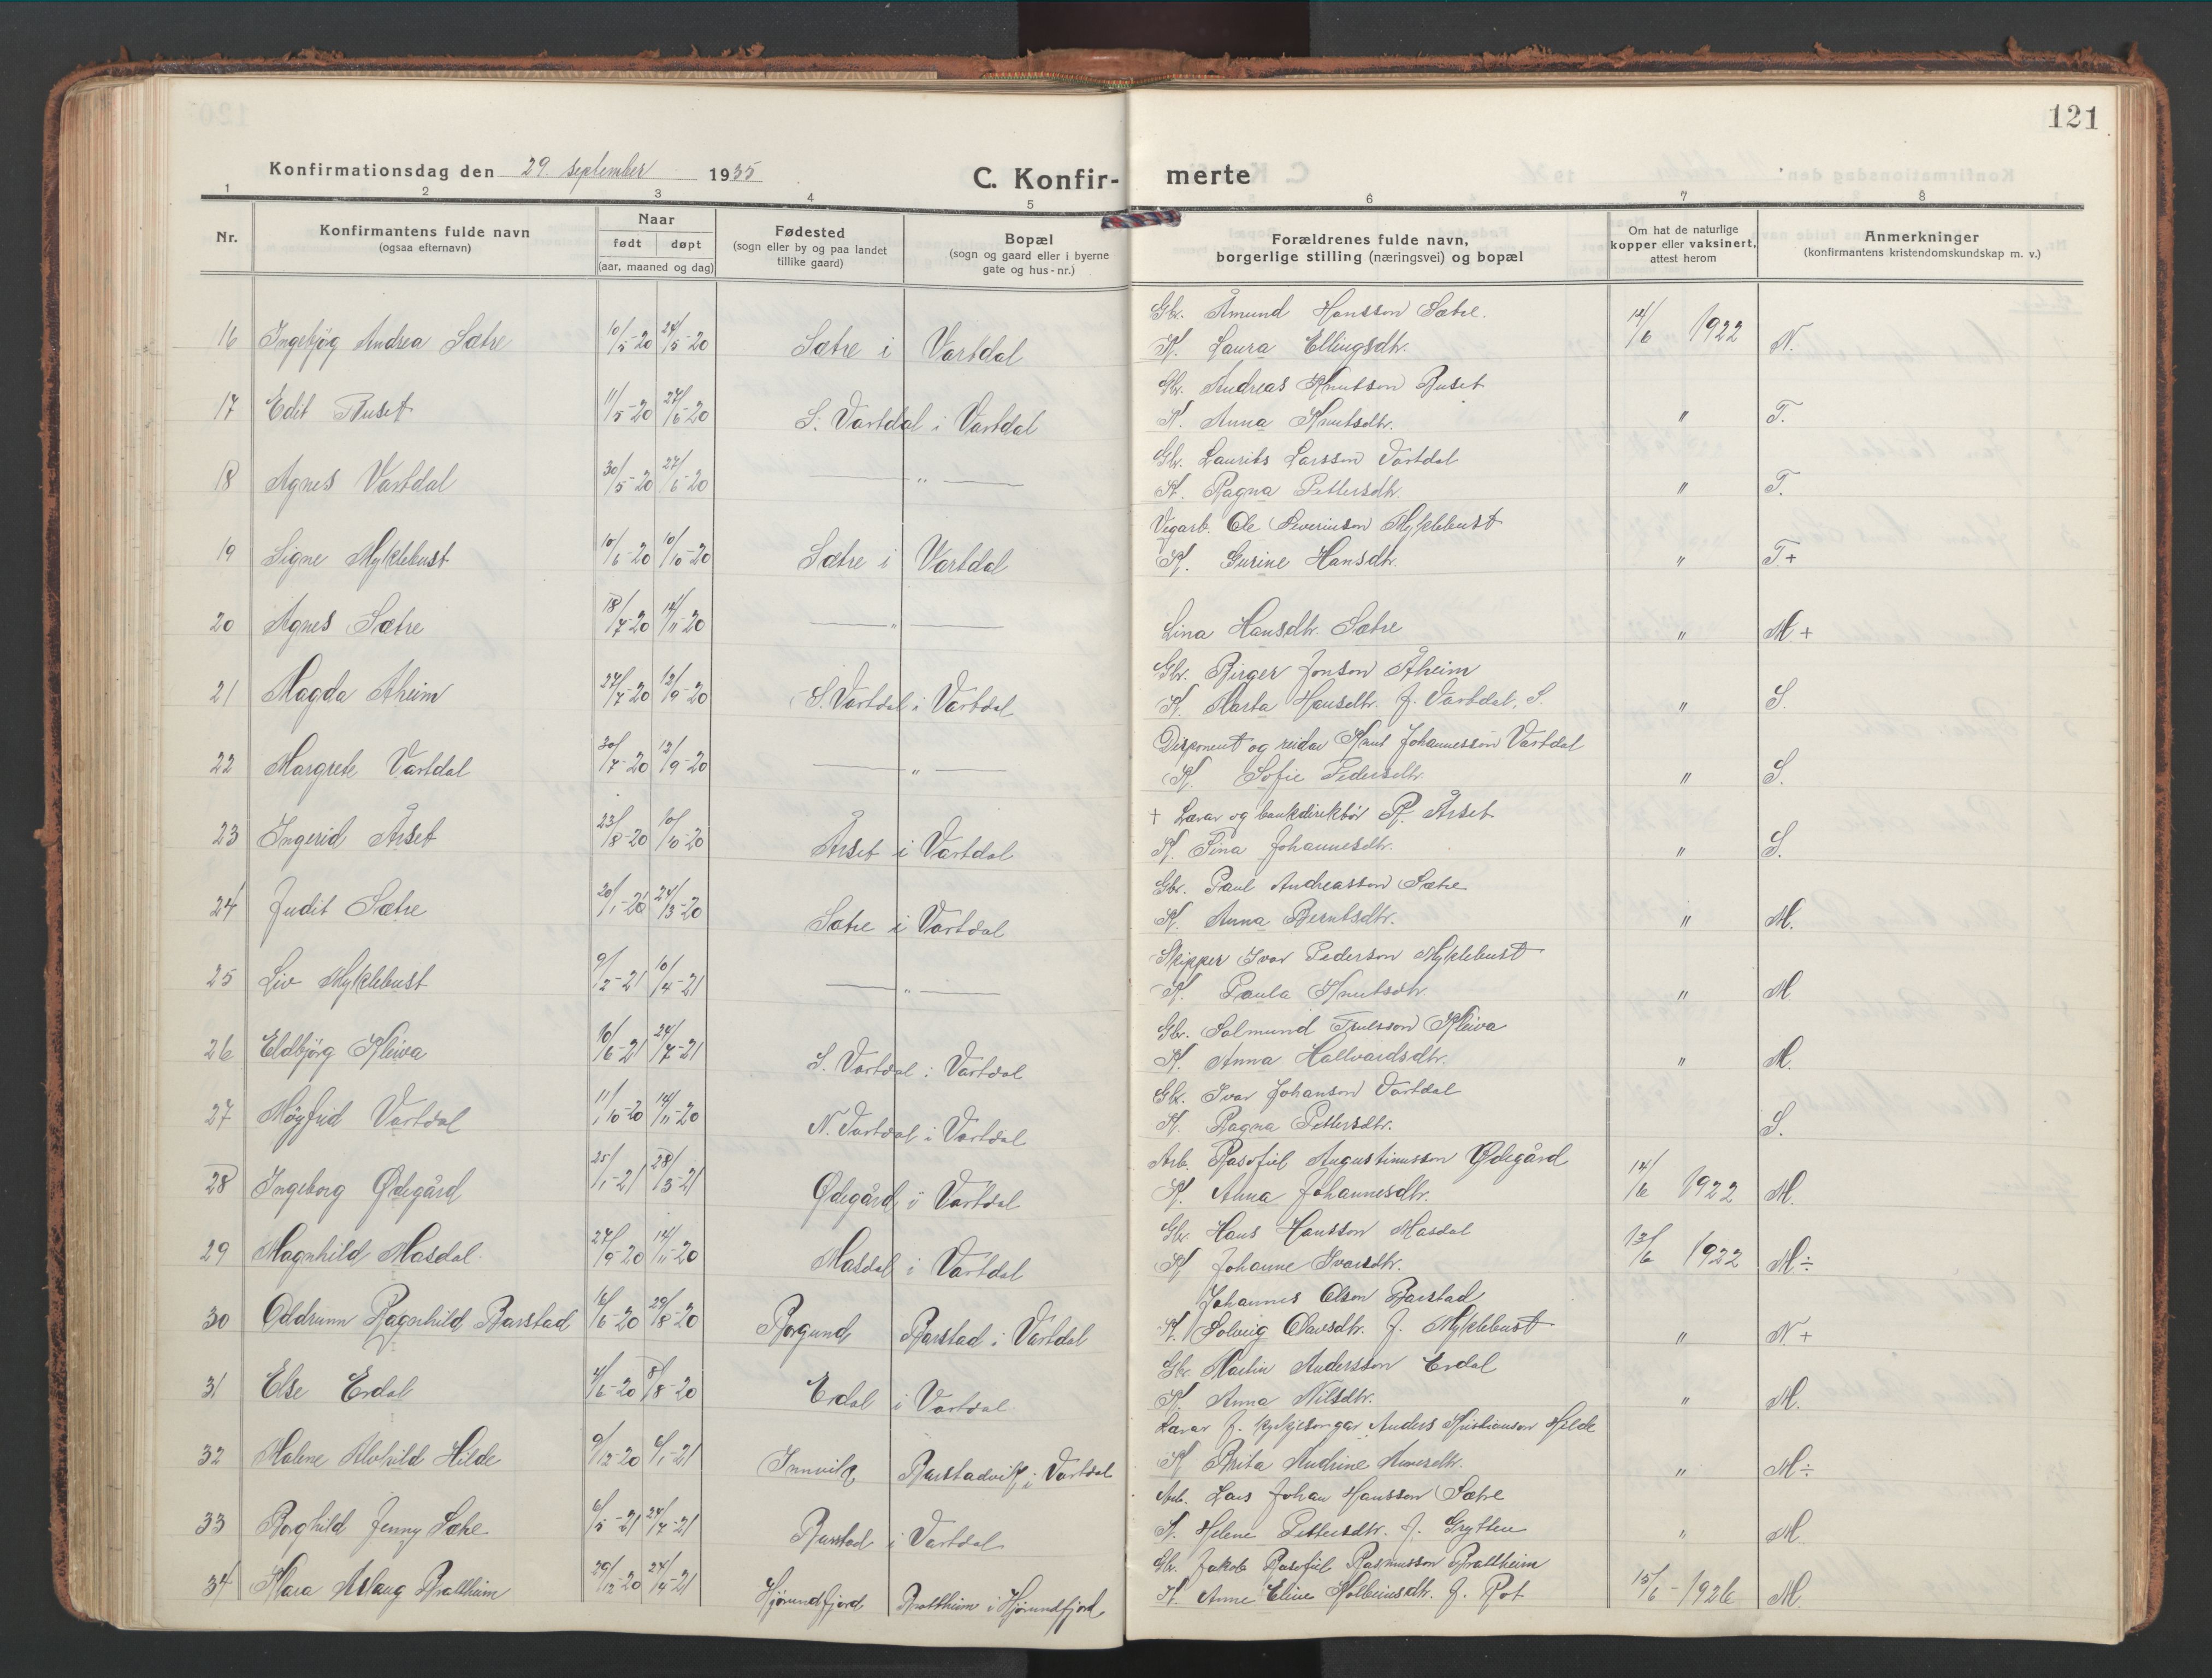 121
Konfirmationsdag den 29. september 1935
C. Konfir- merte
1 2 3 4 5 6 7 8
Nr.
Konfirmantens fulde navn
(ogsaa efternavn)
Naar
født døpt
(aar, maaned og dag)
Fødested
(sogn eller by og paa landet
tillike gaard)
Bopæl
(sogn og gaard eller i byerne
gate og hus-nr.)
Forældrenes fulde navn,
borgerlige stilling (næringsvei) og bopæl
Om hat de naturlige
kopper eller vaksinert,
attest herom
Anmerkninger
(konfirmantens kristendomskundskap m. v.)
Gbr. Åmund Hansson Sætre.
16 Ingebjøg Andrea Sætre 10/5-20 24/5-20 Sætre i Vartdal K. Laura Ellingsdtr. 14/6 1922 N.
Gbr. Andreas Knutson Ruset
17 Edit Ruset 11/5-20 27/6-20 S. Vartdal i Vartdal K. Anna Knutsdtr. " T.
Gbr. Laurits Larsson Vartdal
18 Agnes Vartdal 30/5-20 27/6-20 — " — K. Ragna Pettersdtr. " T.
Vegarb. Ole Severinson Myklebust
19 Signe Myklebust 10/6-20 10/10-20 Sætre i Vartdal K. Gurine Hansdtr. " T+
20 Agnes Sætre 18/7-20 14/11-20 — " — Lina Hansdtr. Sætre " M+
Gbr. Birger Jonson Åheim
21 Magda Aheim 27/7-20 12/9-20 S. Vartdal i Vartdal K. Marta Hansdtr. f. Vartdal, S. " S.
Disponent og reidar Knut Johannesson Vartdal
22 Margrete Vartdal 30/7-20 12/9-20 — " — K. Sofie Pedersdtr. " S.
+ Lærar og bankdirektör R. Årset
23 Ingerid Årset 23/8-20 10/10-20 Årset i Vartdal K. Tina Johannesdtr. " S.
Gbr. Paul Andreasson Sætre
24 Judit Sætre 20/1-20 24/3-20 Sætre i Vartdal K. Anna Berntsdtr. " M.
Skipper Ivar Pederson Myklebust
25 Liv Myklebust 9/2-21 10/4-21 — " — K. Paula Knutsdtr. " M
Gbr. Salmund Trulsson Kleiva
26 Eldbjörg Kleiva 10/6-21 24/7-21 S. Vartdal i Vartdal K. Anna Hallvardsdtr. " M.
Gbr. Ivar Johanson Vartdal
27 Möyfrid Vartdal 11/10-20 14/11-20 N. Vartdal i Vartdal K. Ragna Pettersdtr. S.
Arb. Rasofiel Augustinusson Ødegård
28 Ingeborg Ødegård 25/1-21 28/3-21 Ødegård i Vartdal K. Anna Johannesdtr. 14/6 1922 M.
Gbr. Hans Hansson Masdal
29 Magnhild Masdal 27/9-20 14/11-20 Masdal i Vartdal K. Johanne Ivarsdtr. 13/6 1922 M÷
Johannes Olson Barstad
30 Oddrunn Ragnhild Barstad 16/6-20 29/8-20 Borgund Barstad i Vartdal K. Solveig Olavsdtr. f. Myklebust " N+
Gbr Martin Andersson Erdal
31 Else Erdal 4/6-20 8/8-20 Erdal i Vartdal K. Anna Nilsdtr. " M.
Lærar f. kyrkjesongar Anders Kristianson Hilde
32 Malene Alvhild Hilde 9/12-20 6/1-21 Innvik Barstadvik i Vartdal K Brita Andrine " M÷
Arb. Lars Johan Hansson Sætre
33 Borghild Jenny Sætre 6/5-21 24/7-21 Barstad i Vartdal K. Helene Pettersdtr. f. Grytten " M.
Gbr. Jakob Rasofiel Rasmusson Brattheim
34 Klara Aslaug Brattheim 29/12-20 24/4-21 Hjørundfjord Brattheim i Hjørundfjord K. Anne Eline f. Rot 15/6-1926 M.